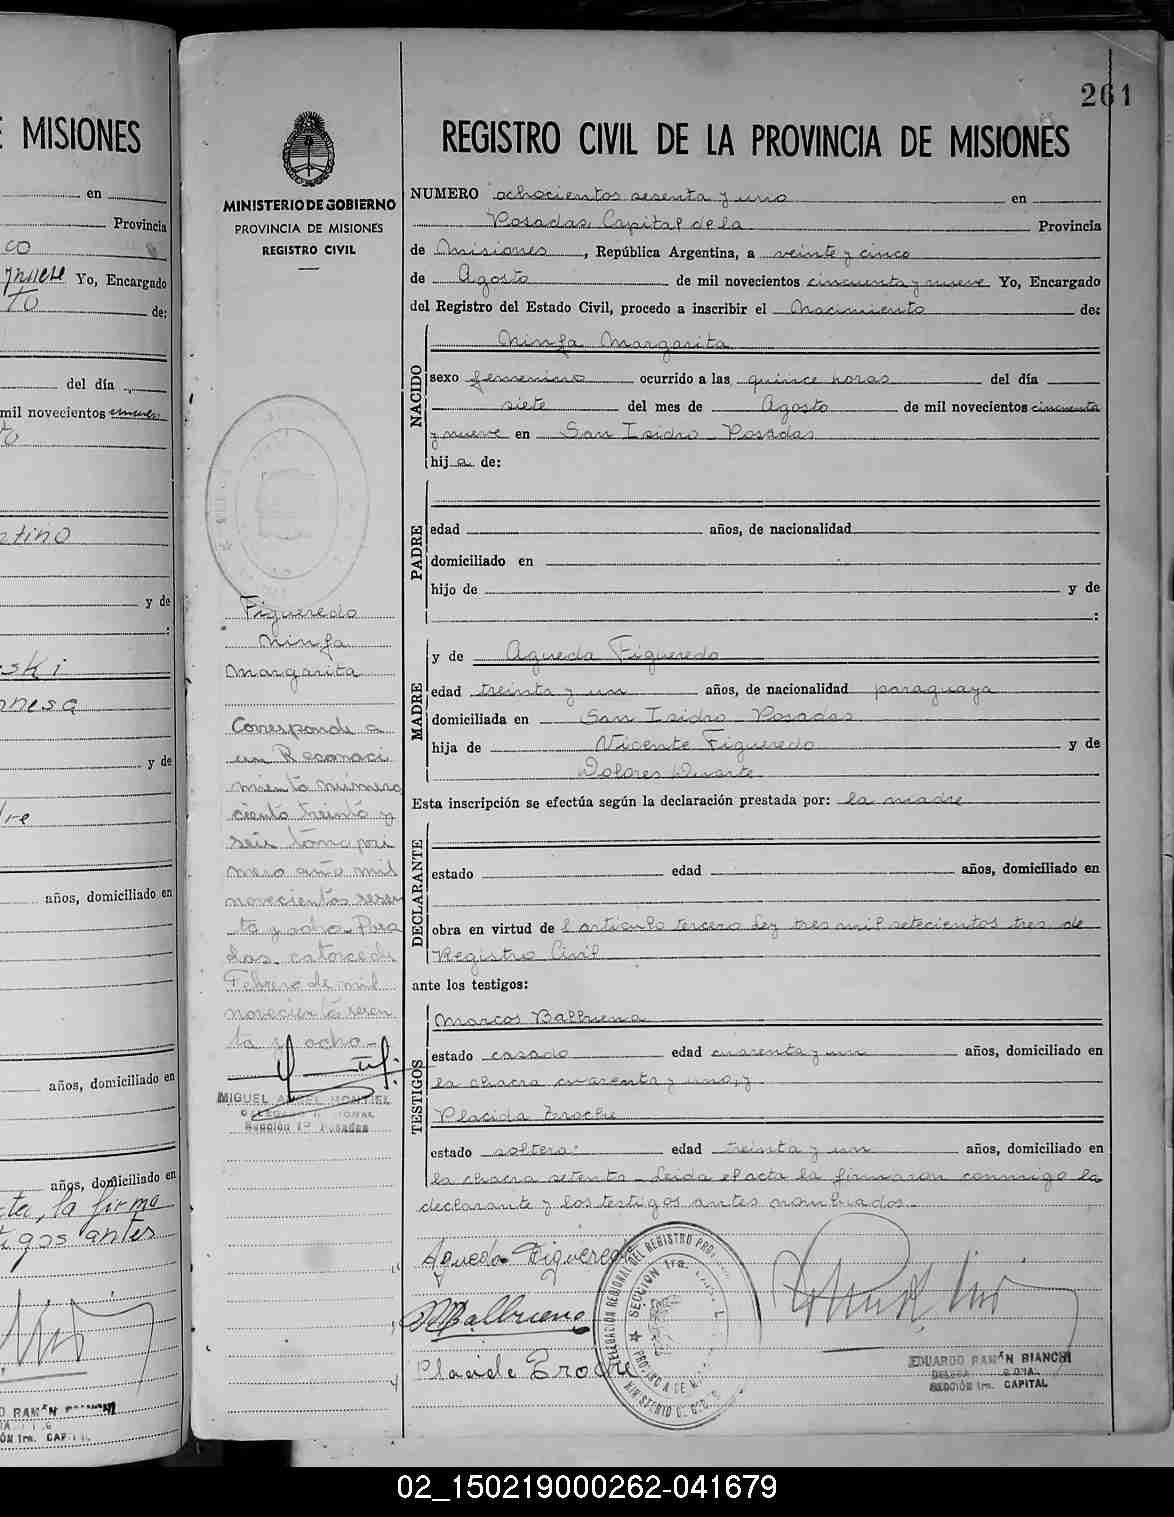 E MISIONES
en
Provincia
co
y nueve Yo, Encargado
to de:
del día
mil novecientos
to
ntino
y de
:
ski
nesa
y de
dre
años, domiciliado en
años, domiciliado en
años, domiciliado en
cta, la firma
igos antes
261
MINISTERIO DE GOBIERNO
PROVINCIA DE MISIONES
REGISTRO CIVIL
REGISTRO CIVIL DE LA PROVINCIA DE MISIONES
NUMERO ochocientos sesenta y uno en
Posadas Capital de la Provincia
de Misiones, República Argentina, a veinte y cinco
de Agosto de mil novecientos cincuenta y nueve Yo, Encargado
del Registro del Estado Civil, procedo a inscribir el Nacimiento de:
NACIDO
Ninfa Margarita
sexo femenino ocurrido a las quince horas del día
siete del mes de Agosto de mil novecientos cincuenta
y nueve en San Isidro Posadas
hija de:
PADRE
edad años, de nacionalidad
domiciliado en
hijo de y de
:
MADRE
y de Agueda Figueredo
edad treinta y un años, de nacionalidad paraguaya
domiciliada en San Isidro Posadas
hija de Vicente Figueredo y de
Dolores Duarte
Esta inscripción se efectúa según la declaración prestada por: la madre
DECLARANTE
estado edad años, domiciliado en
obra en virtud de l artículo tercero Ley tres mil setecientos tres de
Registro Civil
ante los testigos:
TESTIGOS
Marcos Balbuena
estado casado edad cuarenta y un años, domiciliado en
la chacra cuarenta y uno, y
Placida Troche
estado soltera: edad treinta y un años, domiciliado en
la chacra setenta - Leida el acta la firmaron conmigo la
declarante y los testigos antes nombrados.
Figueredo
Ninfa
Margarita
Corresponde a
un Reconoci
miento número
ciento treinta y
seis tomo pri
mero año mil
novecientos sesen
ta y ocho. Posa
das, catorce de
Febrero de mil
novecientos sesen
ta y ocho -
MIGUEL ANGEL MONTIEL
DELEGADO REGIONAL
Sección 1ª Posadas
Agueda Figueredo
MBalbuena
Placida Troche
DELEGACIÓN REGIONAL DEL REGISTRO
SECCIÓN 1ra.
MINISTERIO DE GOB
EDUARDO RAMÓN BIANCHI
SECCIÓN 1ra. CAPITAL
02_150219000262-041679